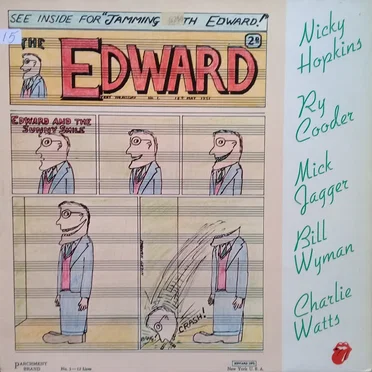 SEE INSIDE FOR "JAMMING WITH EDWARD!"
15
THE
EDWARD
2D
EVERY THURSDAY No. 1. 1ST MAY 1951
EDWARD AND THE
SUNNY SMILE
CRASH!
PARCHMENT
BRAND
No. 3—12 Lines
New York U.S.A.
Nicky
Hopkins
Ry
Cooder
Mick
Jagger
Bill
Wyman
Charlie
Watts